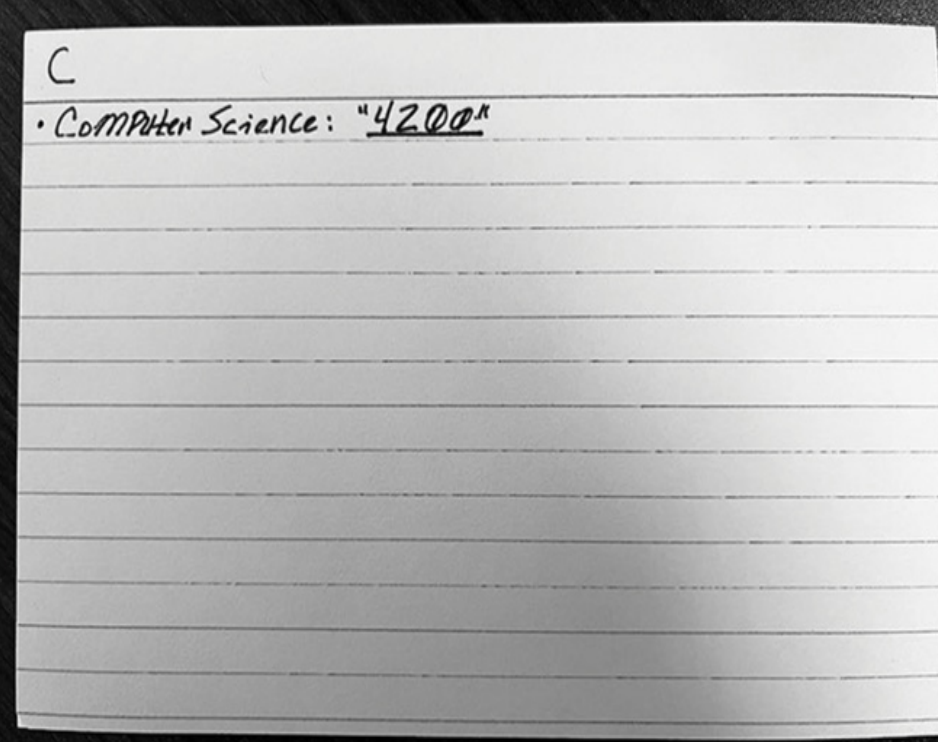 C
• Computer Science: "4200"